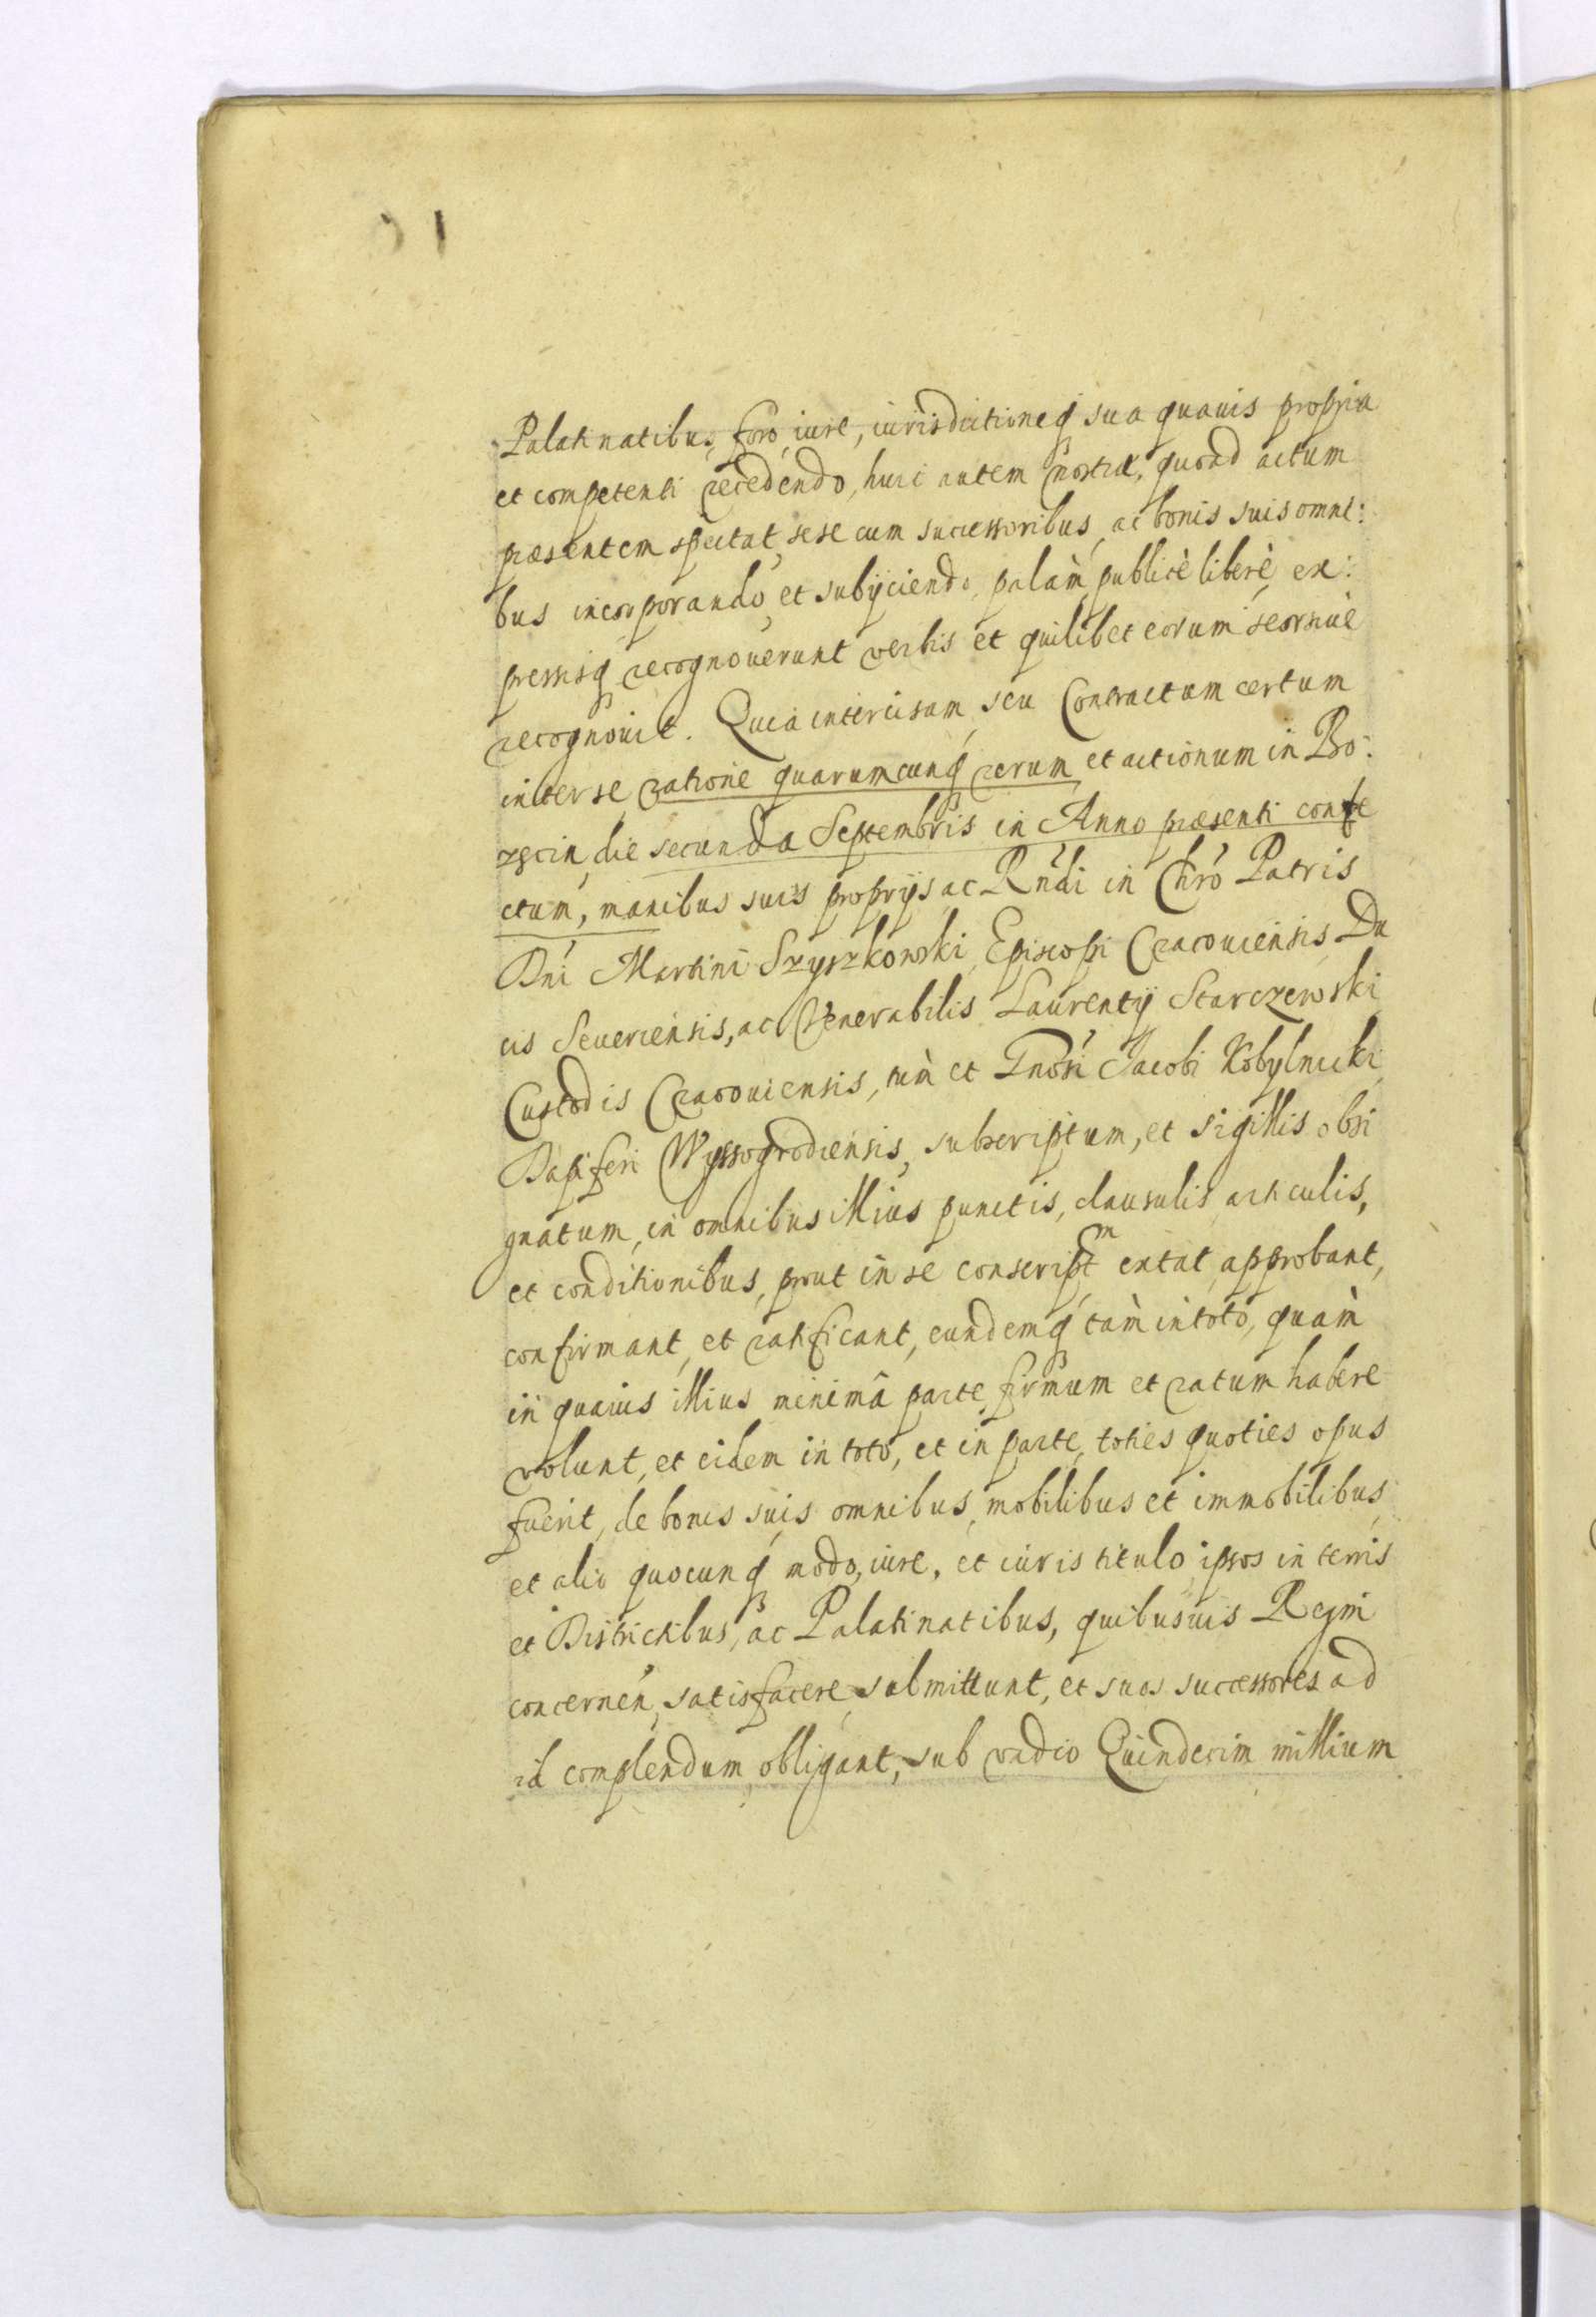 Palatinatibus, foro, iure, iurisdictioneq́ sua quauis propria
et competenti recedendo, huic autem nostræ, quoad actum
præsentem spectat, sese cum successoribus, ac bonis suis omni:
bus incorporando, et subijciendo, palàm, publicè liberè, ex:
pressisq́ recognouerunt verbis et quilibet eorum seorsiuè
recognouit. Quia intercisam, seu Contractum certum
inter se ratione quarumcunq́ rerum, et actionum in Bo:
zęcin, die secunda Septembris in Anno præsenti confe
ctum, manibus suis proprijs ac Rńdi in Chró Patris
Dńi Martini Szyszkowski, Episcopi Cracouiensis, Du
cis Seueriensis, ac Venerabilis Laurentij Starczewski
Custodis Cracouiensis, tum et Gnósi Jacobi Kobylnicki
Dapiferi Wyssogrodiensis, subscriptum, et sigillis obsi
gnatum, in omnibus illius punctis, clausulis, articulis,
et conditionibus, prout in se conscriptm extat, approbant,
confirmant, et ratificant, eundemq́ tàm in toto, quàm
in quauis illius minimâ parte, firmum et ratum habere
volunt, et eidem in toto, et in parte, toties quoties opus
fuerit, de bonis suis omnibus, mobilibus et immobilibus,
et alio quocunq́ modo, iure, et iuris titulo, ipsos in terris
et Districtibus, ac Palatinatibus, quibusuis Regni
concerneń, satisfacere, submittunt, et suos successores ad
id complendum, obligant, sub vadio Quindecim millium